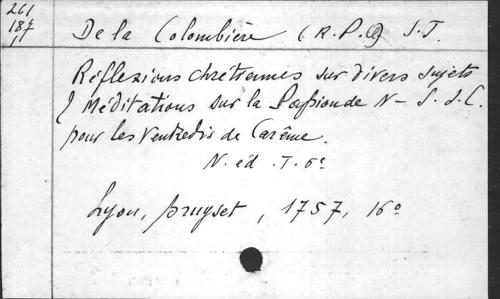 261
187
11
De la Colombière (R.P.C) S.J.
Réflexions chrétiennes sur divers sujets
& Méditations sur la Passion de N- S. J.C.
pour les Vendredis de Carême.
N. éd. T. 6e
Lyon, Bruyset, 1757, 16°